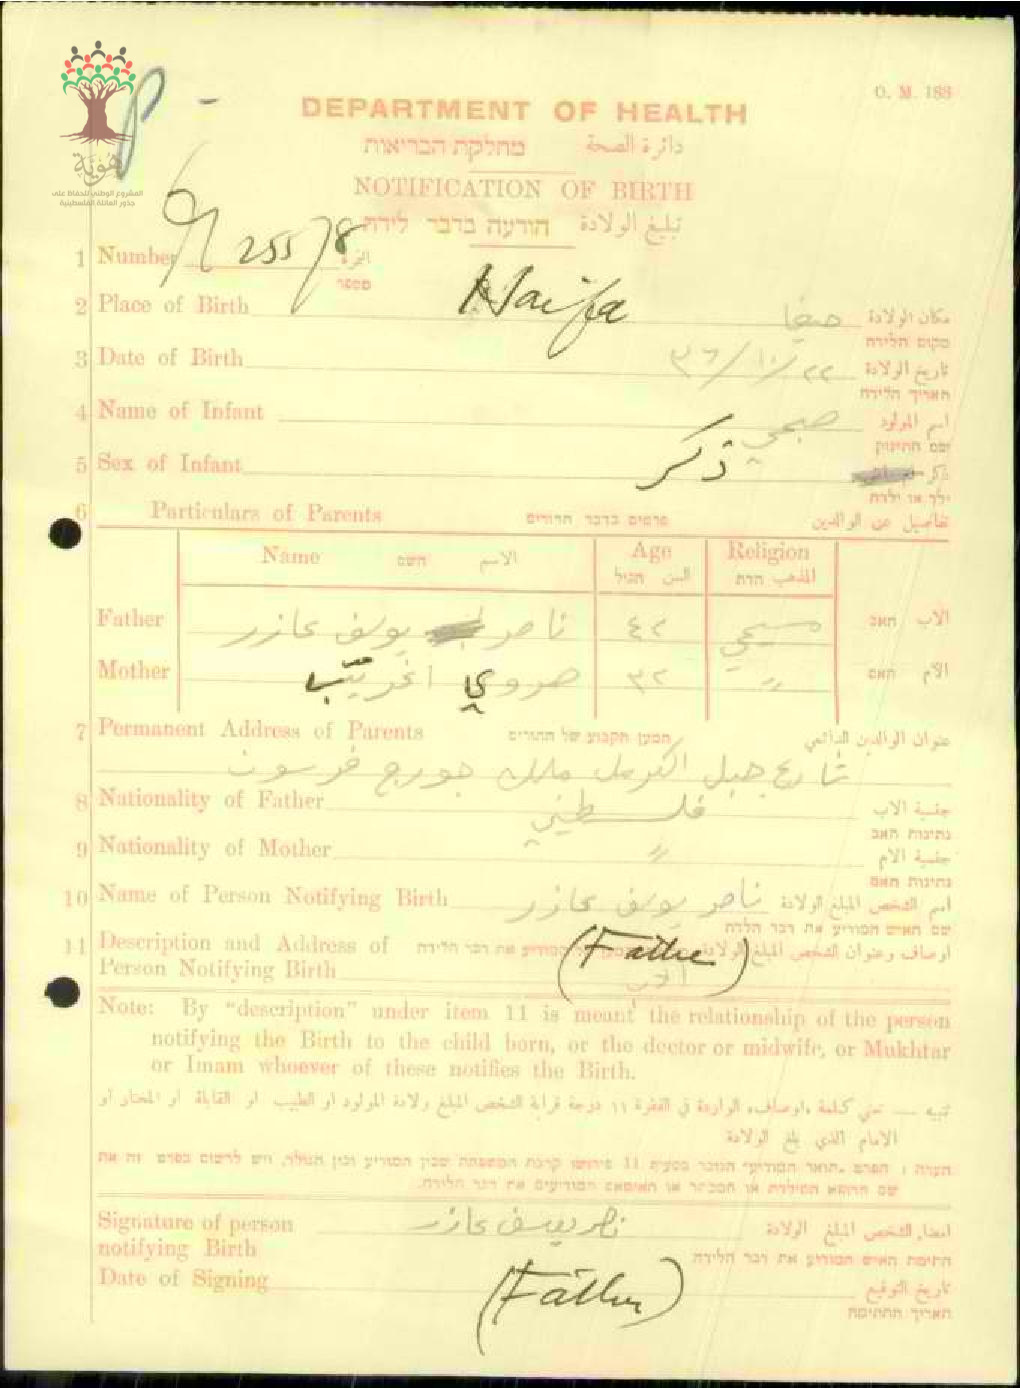 O. M. 188
DEPARTMENT OF HEALTH
دائرة الصحة מחלקת הבריאות
NOTIFICATION OF BIRTH
تبليغ الولادة הודעה בדבר לידה
هوية
المشروع الوطني للحفاظ على
جذور العائلة الفلسطينية
1 Number 255/8 النمرة
מספר
2 Place of Birth Haifa حيفا مكان الولادة
מקום הלידה
3 Date of Birth ٢٢/١٠/٣٦ تاريخ الولادة
תאריך הלידה
4 Name of Infant صبحي اسم المولود
שם התינוק
5 Sex of Infant ذكر ذكر
ילד או ילדה
6 Particulars of Parents פרטים בדבר ההורים تفاصيل عن الوالدين
Name השם الاسم Age Religion
السن הגיל المذهب הדת
Father ناصر يوسف عازر ٤٢ مسيحي الاب האב
Mother ٣٢ " الام האם
7 Permanent Address of Parents המען הקבוע של ההורים عنوان الوالدين الدائمي
شارع جبل الكرمل ملك جورج
8 Nationality of Father فلسطيني جنسية الاب
נתינות האב
9 Nationality of Mother " جنسية الام
נתינות האם
10 Name of Person Notifying Birth ناصر يوسف عازر اسم الشخص المبلغ الولادة
שם האיש המודיע את דבר הלידה
11 Description and Address of (Father) את דבר הלידה اوصاف وعنوان الشخص المبلغ الولادة
Person Notifying Birth الاب
Note: By “description” under item 11 is meant the relationship of the person
notifying the Birth to the child born, or the doctor or midwife, or Mukhtar
or Imam whoever of these notifies the Birth.
تنبيه — تعني كلمة «اوصاف» الواردة في الفقرة ١١ درجة قرابة الشخص المبلغ ولادة المولود او الطبيب او القابلة او المختار او
الامام الذي بلغ الولادة
הערה : הפרט "תואר המודיע" הנזכר בסעיף 11 פירושו קרבת המשפחה שבין המודיע ובין הנולד, ויש לרשום בפרט זה את
שם הרופא המילדת או המכתר או האימאם המודיעים את דבר הלידה.
Signature of person ناصر يوسف عازر امضاء الشخص المبلغ الولادة
notifying Birth חתימת האיש המודיע את דבר הלידה
Date of Signing (Father) تاريخ التوقيع
תאריך החתימה